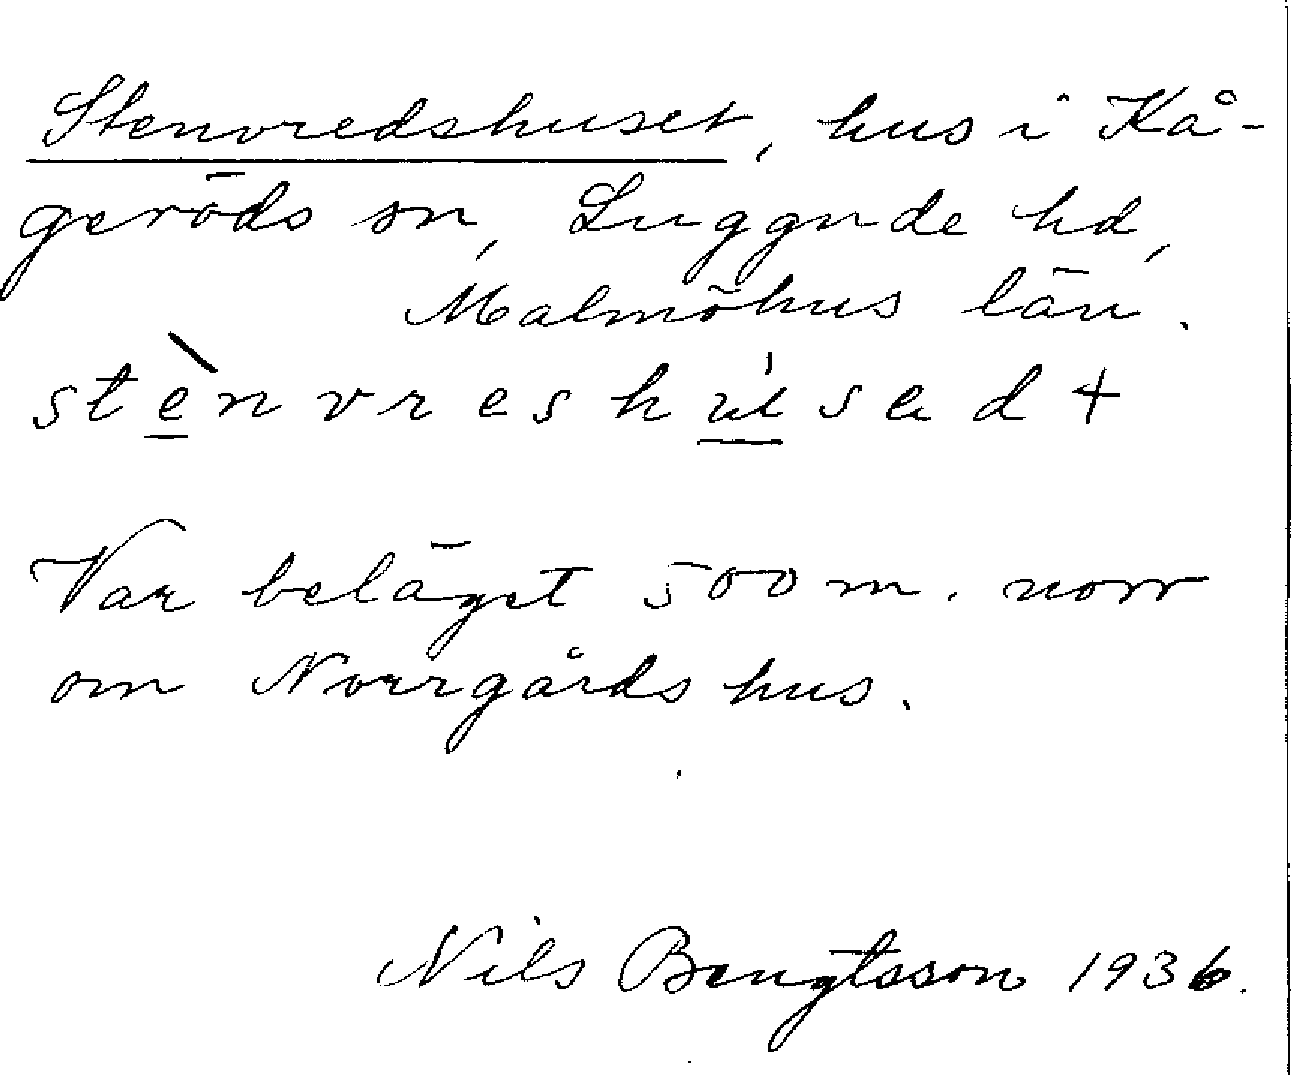 Stenvredshuset, hus i Kå-
geröds sn, Luggude hd,
Malmöhus län.
stènvreshúsad +
Var beläget 500 m. norr
om Norrgårdshus.
Nils Bengtsson 1936.